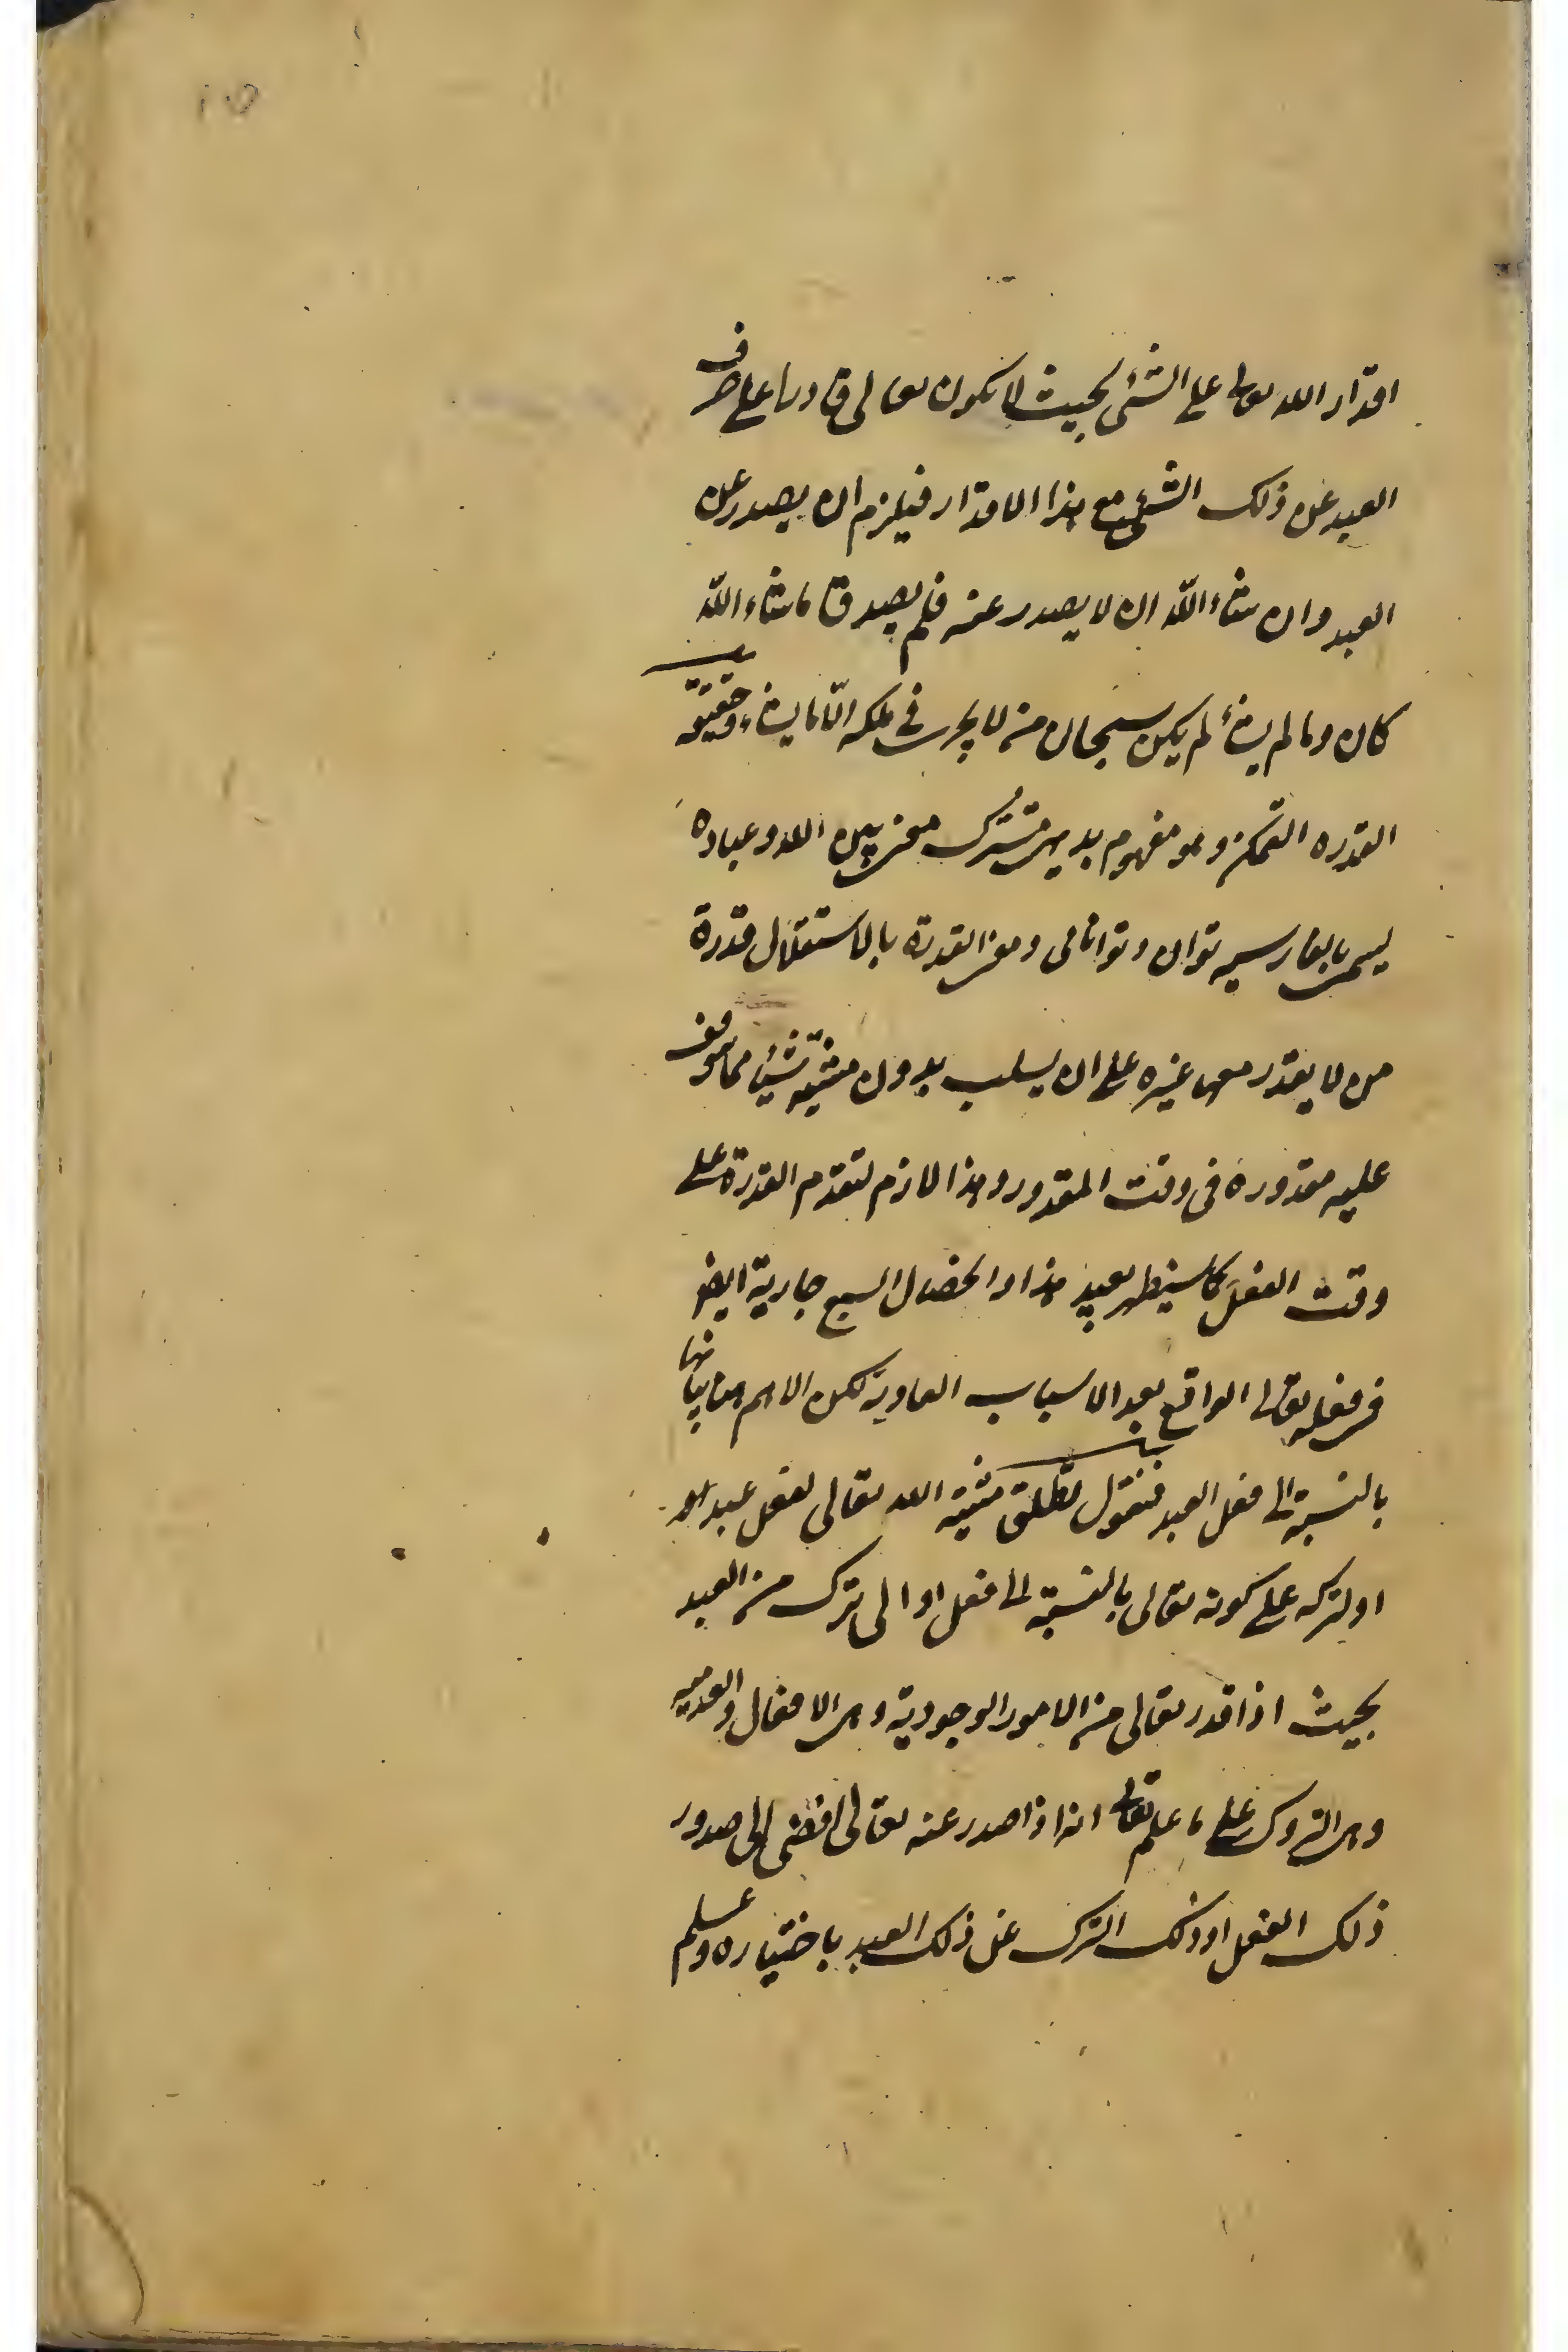 اقدار الله تعالى على الشئ بحيث لا يكون تعالى قادرا على صرف
العبد عن ذلك الشئ مع هذا الاقدار فيلزم ان يصدر عن
العبد وان شاء الله ان لا يصدر عنه فلم يصدق ما شاء الله
كان وما لم يشأ لم يكن سبحان من لا يجرى فى ملكه الا ما يشاء وحقيقة
القدره التمكن وهو مفهوم بديهى مشترك معنى بين الله وعباده
يسمى بالفارسيه توان وتوانائى ومعنى القدرة بالاستقلال قدرة
من لا يقدر معها غيره على ان يسلب بدون مشيته شيئا مما توقف
عليه مقدوره فى وقت المقدور وهذا لازم لتقدم القدرة على
وقت الفعل كما سيظهر بعيد هذا والخصال السبع جارية ايضا
فى فعله تعالى الواقع بعد الاسباب العادية لكن الاهم هنا بيانها
بالنسبة الى فعل العبد فنقول تطلق مشية الله تعالى لفعل عبد هو
او لتركه على كونه تعالى بالنسبة الى فعل او الى ترك من العبد
بحيث اذا قدر تعالى من الامور الوجودية وهى الافعال والعدميه
وهى التروك على ما علم تعالى انه اذا صدر عنه تعالى افضى الى صدور
ذلك الفعل او ذلك الترك عن ذلك العبد باختياره وعلم